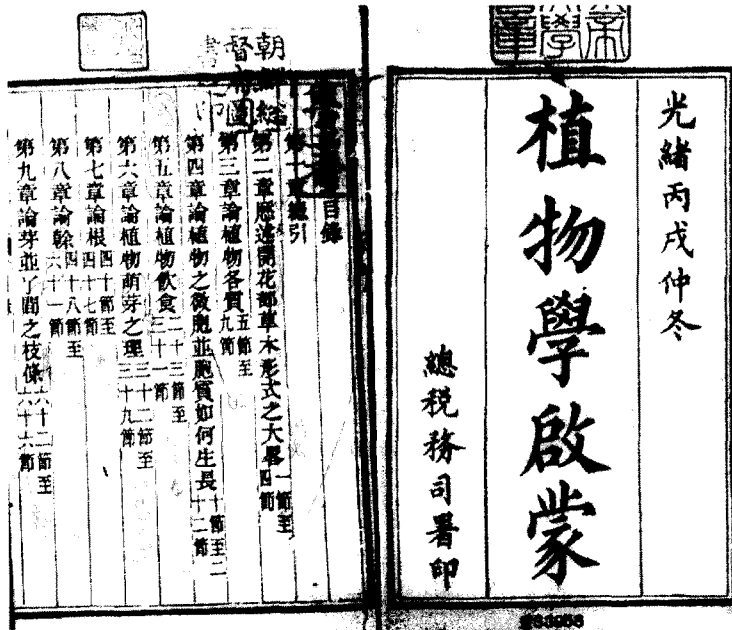 光緒丙戌仲冬
植物學啟蒙
總稅務司署印
目錄
第一章總引
第二章歷述開花部草木形式之大畧一節至四節
第三章論植物各質五節至九節
第四章論植物之微胞並胞質如何生長十節至二十二節
第五章論植物飲食二十三節至三十一節
第六章論植物萌芽之理三十二節至三十九節
第七章論根四十節至四十七節
第八章論榦四十八節至六十一節
第九章論芽並了間之枝條六十二節至六十六節